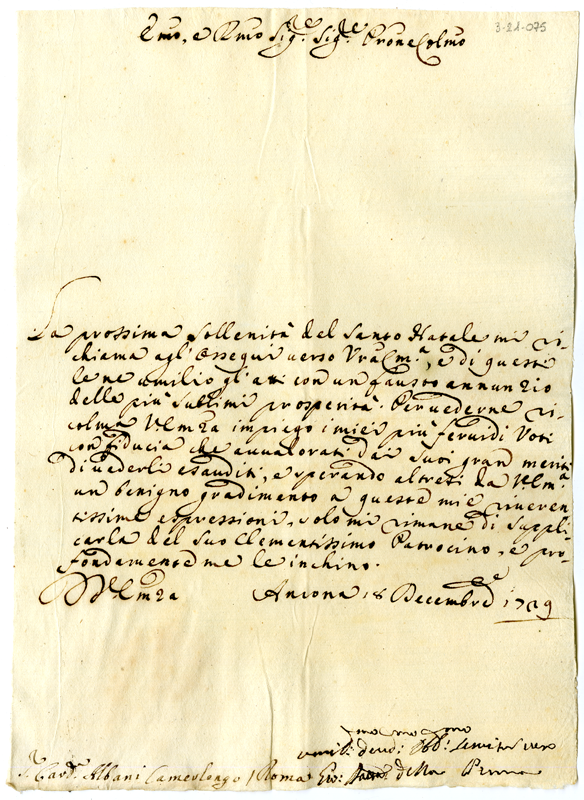 3-21-075
Emo, e Rmo Sig.re Sig.re Prone Colmo
La prossima sollenità del Santo Natale mi ri-
chiama agl'ossequi verso Vra Em.a, e di questi
le ne umilio gl'atti con un fausto annunzio
delle più sublimi prosperità. Per vederne ri-
colma V. Emza impiego i miei più fervidi Voti
con fiducia che avvalorati dai suoi gran meriti
di vederli esauditi, e sperando altresì da V. Em.a
un benigno gradimento a queste mie riveren
tissime espressioni, solo mi rimane di suppli
carla del suo Clementissimo Patrocinio, e pro-
fondamente me le inchino.
D. V. Emza Ancona 18 Decembre 1729
umil: devot: obb: servitor vero
S.r Card.le Albani Camerlengo / Roma Gio: della